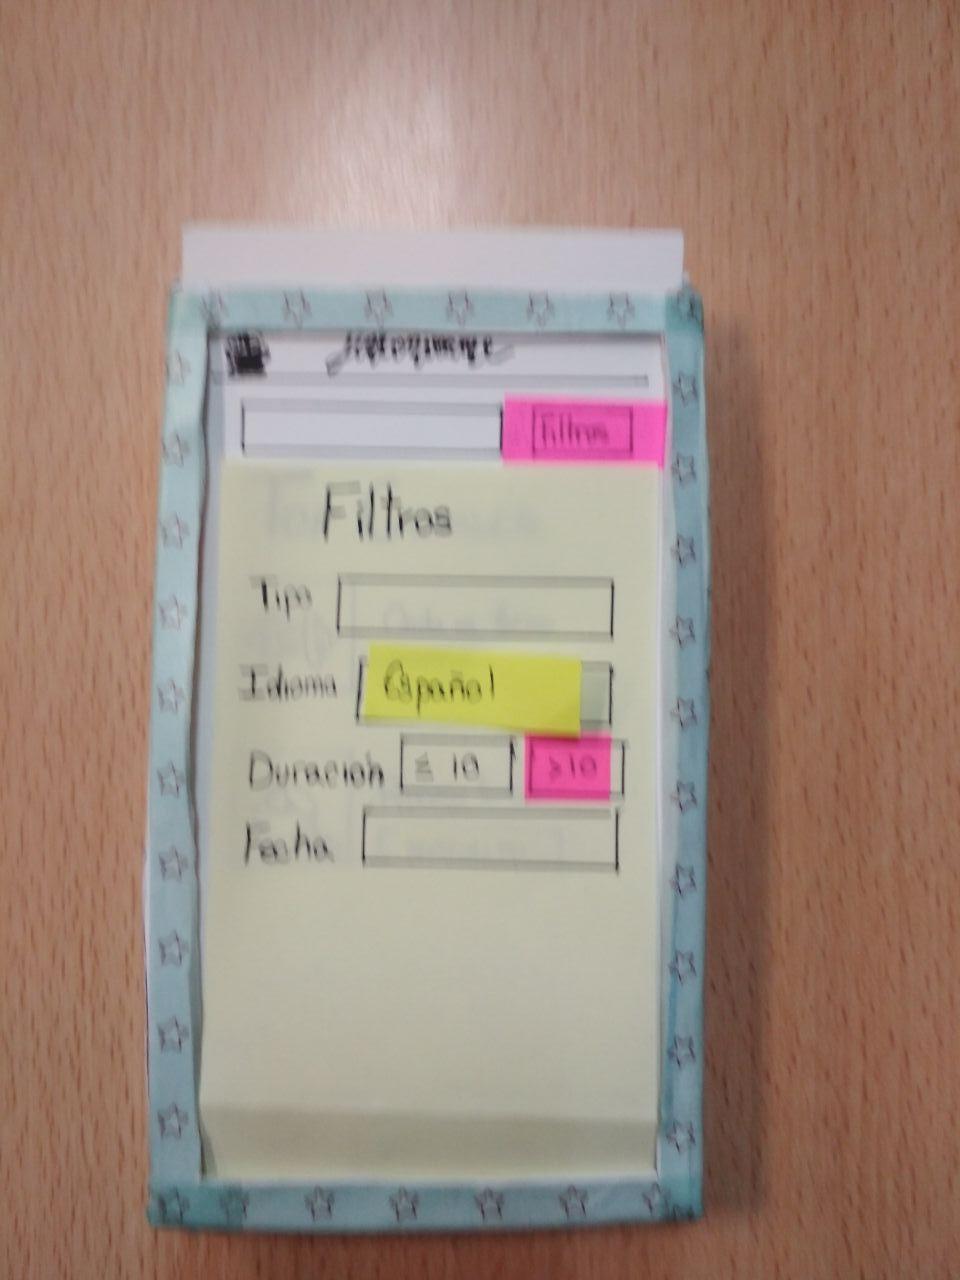 Filtros
Filtros
Tipo
Idioma Español
Duración ≤ 10 >10
Fecha